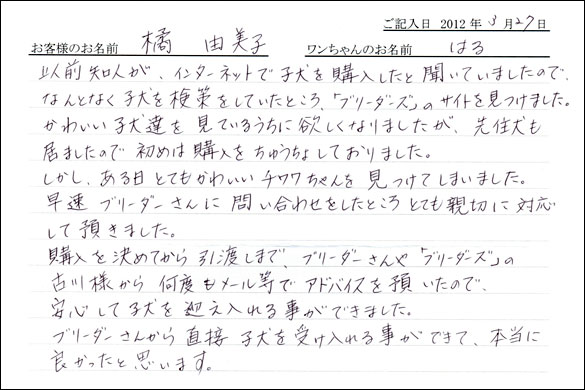 ご記入日 2012年 3月27日
お客様のお名前 橘 由美子 ワンちゃんのお名前 はる
以前知人が、インターネットで子犬を購入したと聞いていましたので、
なんとなく子犬を検策をしていたところ、「ブリーダーズ」のサイトを見つけました。
かわいい子犬達を見ているうちに欲しくなりましたが、先住犬も
居ましたので初めは購入をちゅうちょしておりました。
しかし、ある日とてもかわいいチワワちゃんを見つけてしまいました。
早速ブリーダーさんに問い合わせをしたところとても親切に対応
して頂きました。
購入を決めてから引渡しまで、ブリーダーさんや「ブリーダーズ」の
古川様から何度もメール等でアドバイスを頂いたので、
安心して子犬を迎え入れる事ができました。
ブリーダーさんから直接子犬を受け入れる事ができて、本当に
良かったと思います。